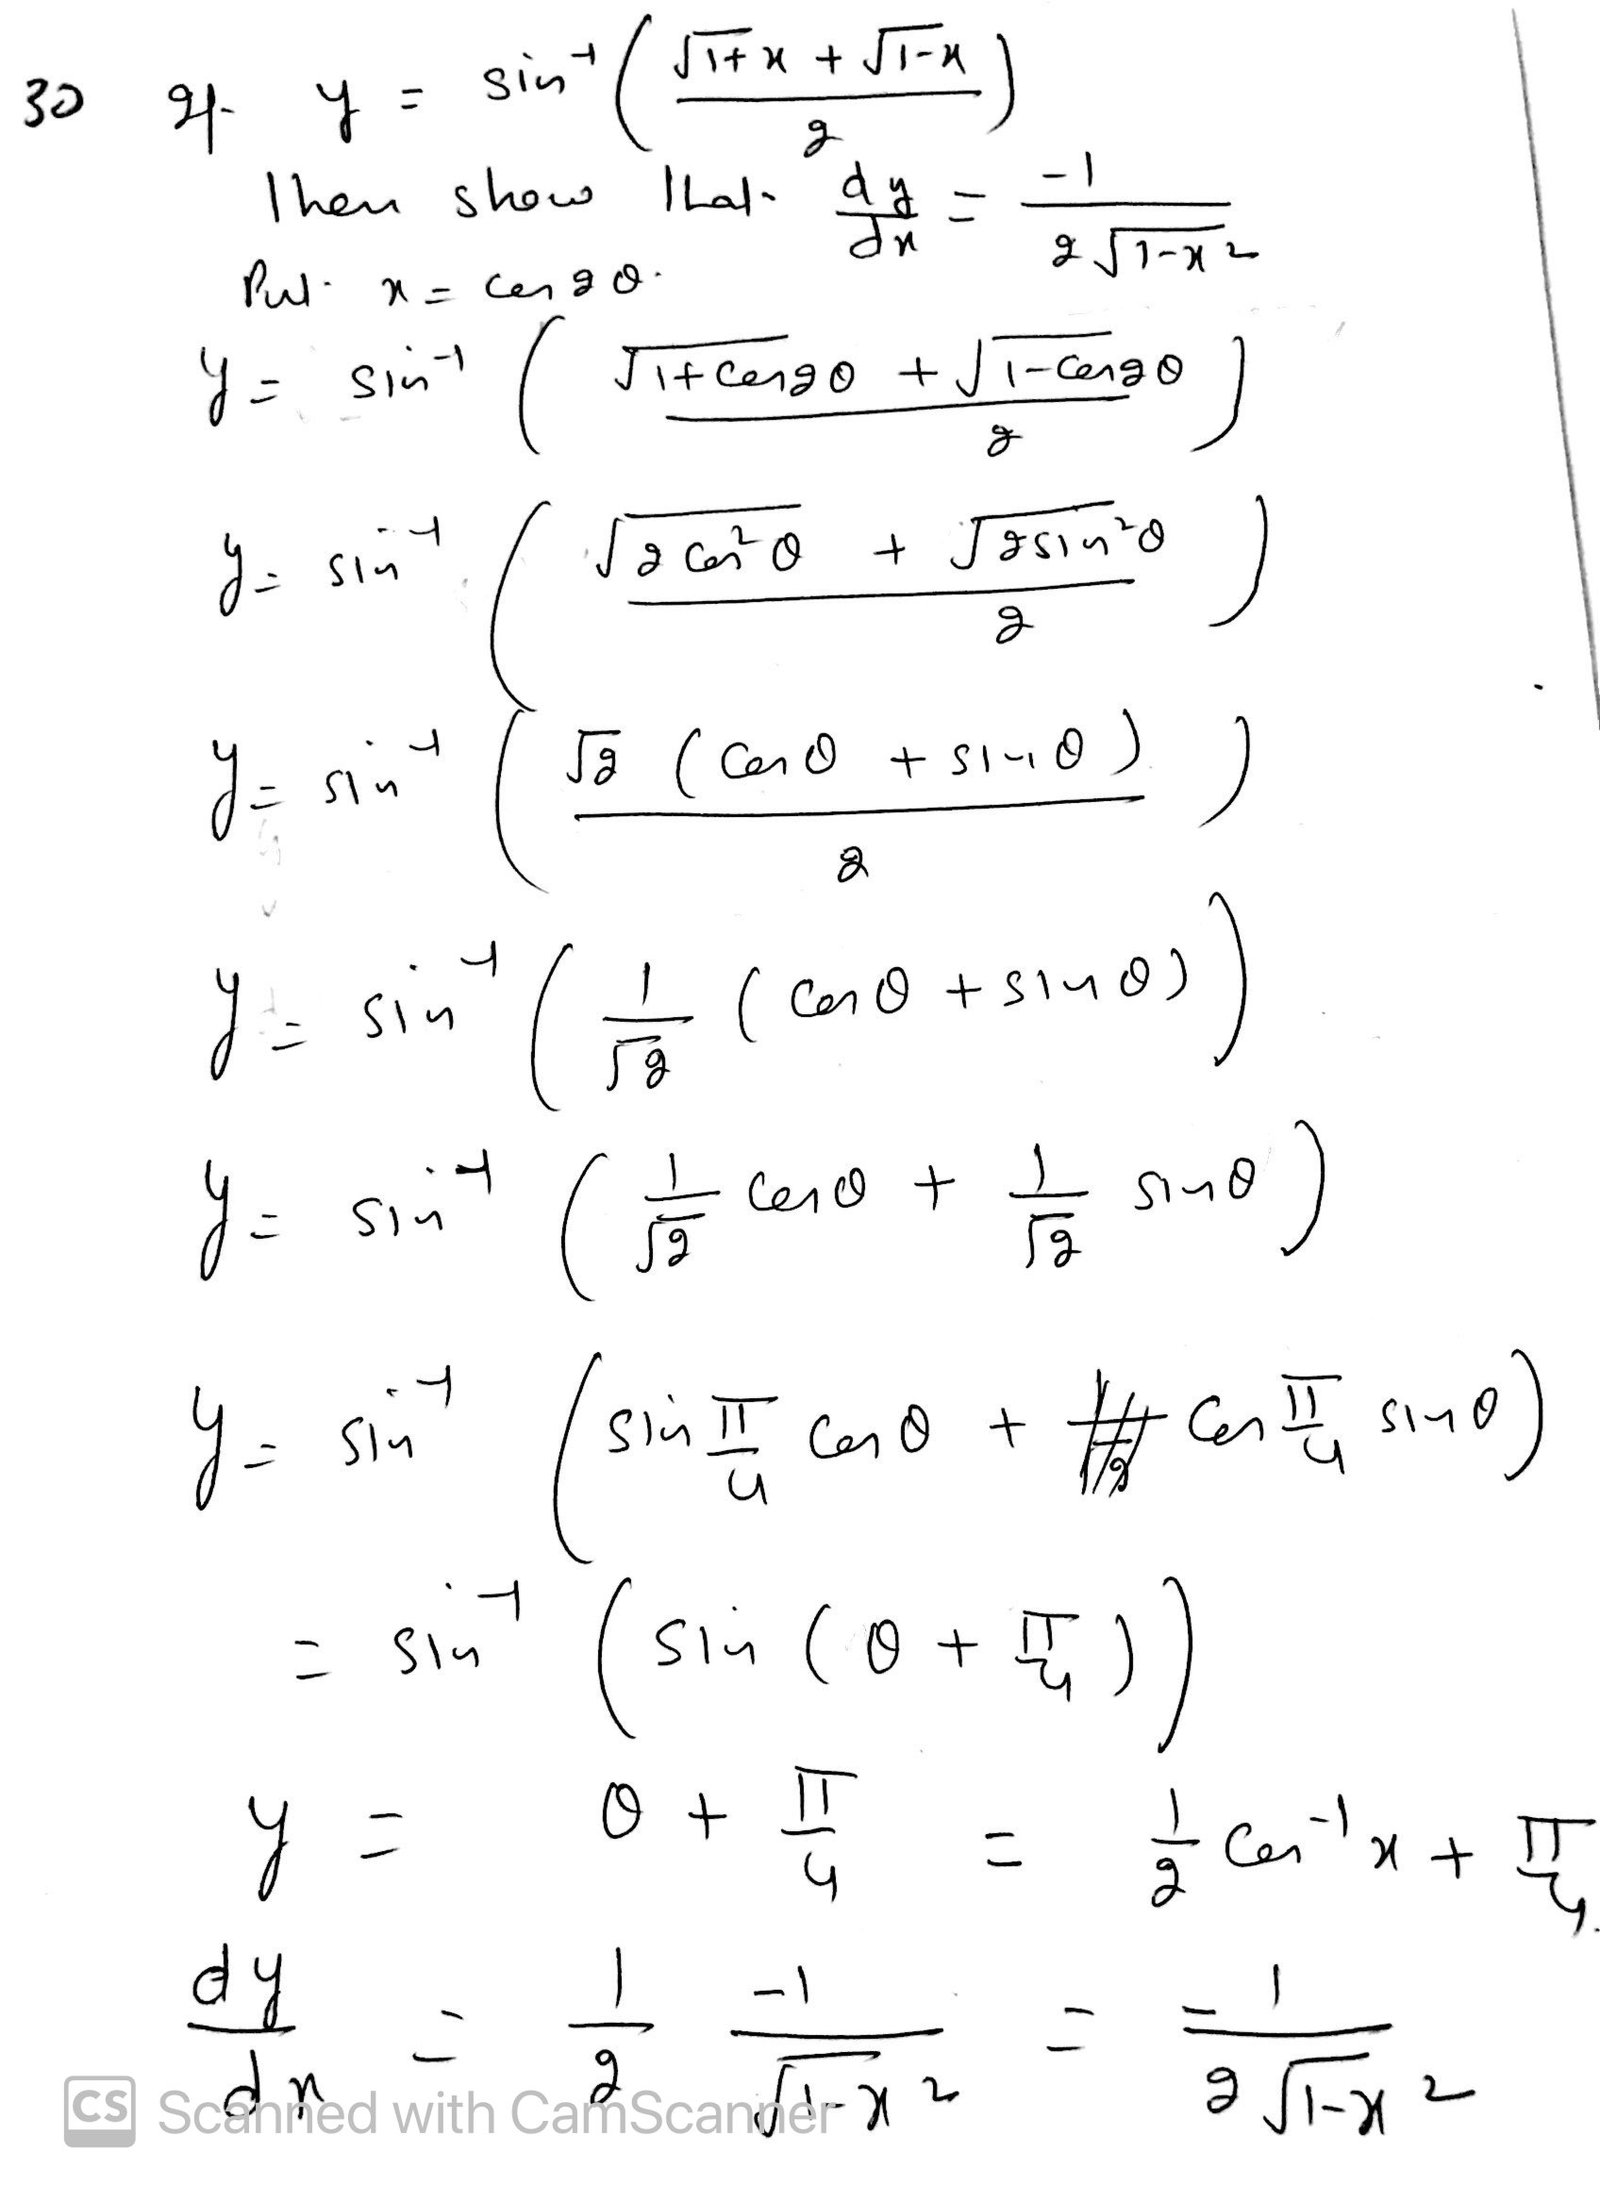 30 If y = sin⁻¹ ( (√1+x + √1-x) / 2 )
Then show that dy/dx = -1 / 2√1-x²
Put x = cos2θ.
y = sin⁻¹ ( (√1+cos2θ + √1-cos2θ) / 2 )
y = sin⁻¹ ( (√2cos²θ + √2sin²θ) / 2 )
y = sin⁻¹ ( √2 (cosθ + sinθ) / 2 )
y = sin⁻¹ ( 1/√2 (cosθ + sinθ) )
y = sin⁻¹ ( 1/√2 cosθ + 1/√2 sinθ )
y = sin⁻¹ ( sin π/4 cosθ + cos π/4 sinθ )
= sin⁻¹ ( sin ( θ + π/4 ) )
y = θ + π/4 = 1/2 cos⁻¹x + π/4.
dy/dx = 1/2 -1/√1-x² = -1/2√1-x²
CS Scanned with CamScanner